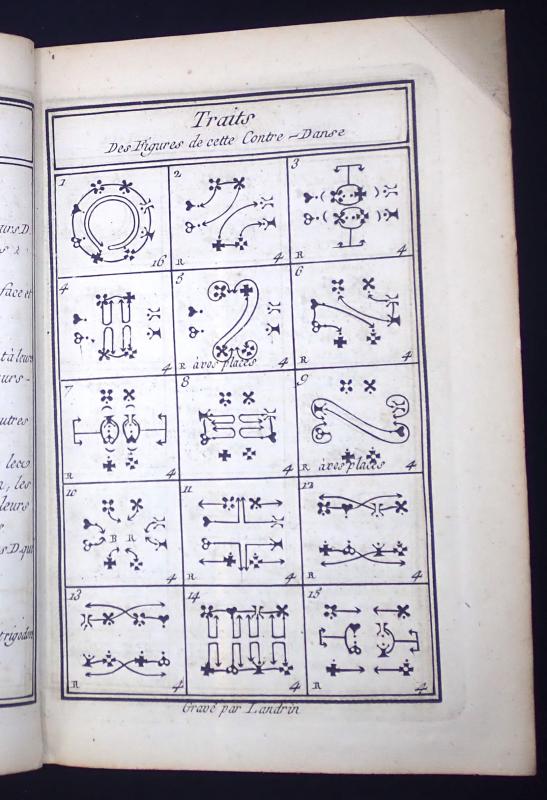 Traits
Des Figures de cette Contre-Danse
1 16
2 R 4
3 R 4
4 4
5 R à vos places 4
6 R 4
7 R 4
8 4
9 R à vos places 4
10 B R 4
11 R 4
12 R 4
13 R 4
14 4
15 R 4
Gravé par Landrin
face et